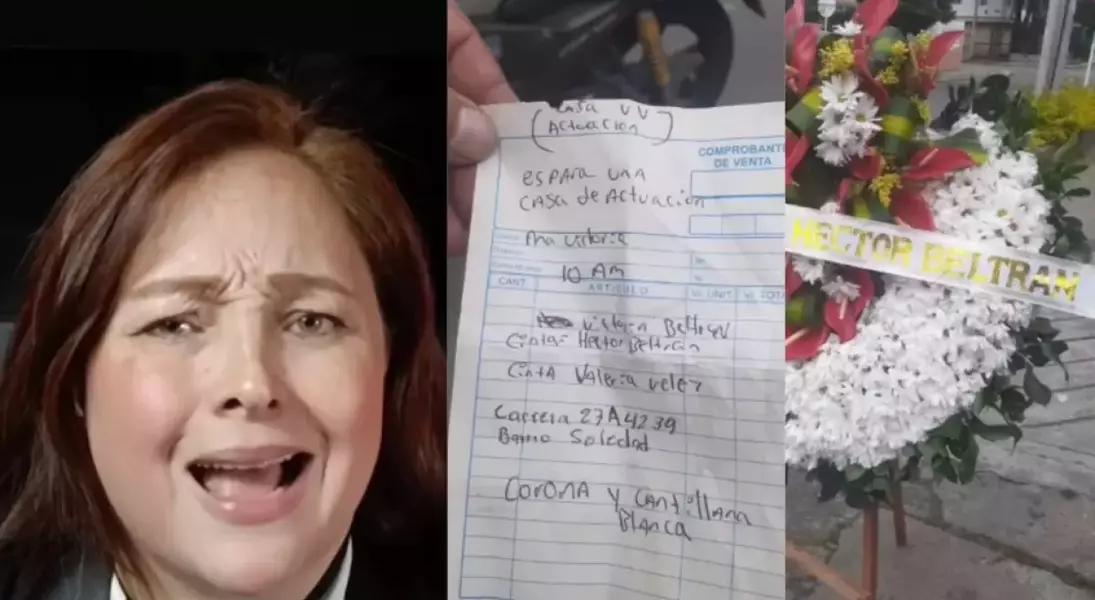 Casa VV
(Actuacion)
COMPROBANTE
DE VENTA
es para una
casa de actuacion
Ana victoria
10 AM
CANT.
ARTICULO
V. UNIT.
V. TOTA
victoria Beltran
Cinta: Hector Beltran
Cinta Valeria velez
Carrera 27A 42 39
Barrio Soledad
Corona y
Blanca
HECTOR BELTRAN